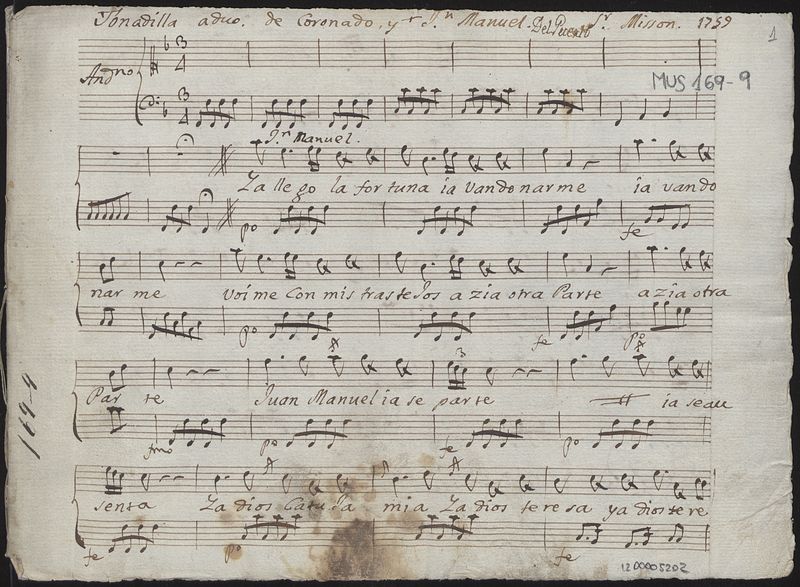 Tonadilla a duo. de Coronado, y Sr. Jn. Manuel. Del Puerto Sr. Misson. 1759
1
MUS 169-9
Andno
3 4
3 4
Jn. Manuel.
Za lle go la for tuna ia Vando nar me ia vando
po fe
nar me Voi me Con mis tras te Jos a zia otra Parte a zia otra
po fe po
Par te Juan Manuel ia se parte ia seau
fmo po fe po
3
senta Za dios Catuja mia Za dios te re sa ya dios te re
fe po fe
169-9
1200005202